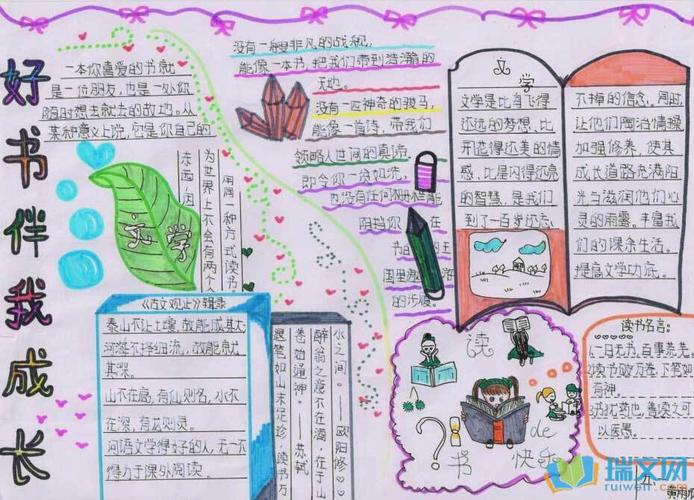 好书伴我成长
一本你喜爱的书就
是一位朋友，也是一处你
随时想去就去的故地。从
某种意义上说，它是你自己的
东西，因
为世界上不会有两个人
用同一种方式读书
没有一艘非凡的战舰，
能像一本书，把我们带到浩瀚的
天地。
没有一匹神奇的骏马，
能像一首诗，带我们
领略人世间的真谛。
即令你一贫如洗，
也没有任何栅栏能
阻挡你在
书的
国里遨游
的步履
文学
文学是比鸟飞得
还远的梦想，比
开花得还美的情
感，比星闪得还亮
的智慧，是我们
到了一百岁还忘
不掉的信念，同时
让他们陶冶情操
加强修养，使其
成长道路充满阳
光与滋润他们心
灵的雨露。丰富我
们的课余生活。
提高文学功底。
文学
《古文观止》辑录
泰山不让土壤，故能成其大
河海不择细流，故能就
其深。
山不在高，有仙则名，水不
在深，有龙则灵。
问语文学得好的人，无一不
得力于课外阅读。
水之间。——欧阳修
醉翁之意不在酒，在于山
苏轼
读书万
读
书
de
快乐
读书名言：
1、一日无书，百事荒芜。
2、读书破万卷，下笔如
有神。
3、书犹药也，善读之可
以医愚。
瑞文网
ruiwen.com